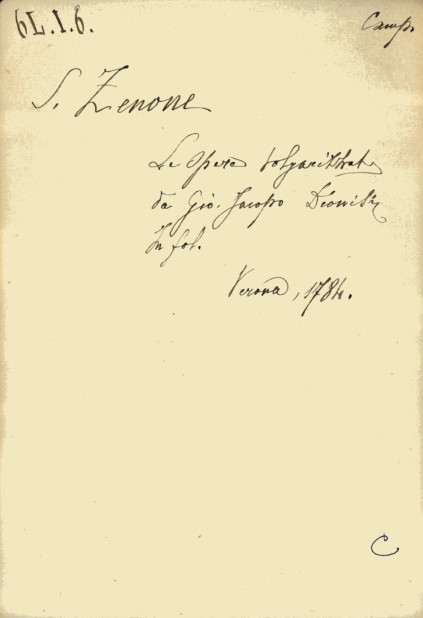 6L.I.6.
Camp.
S. Zenone
Le Opere volgarizzate
da Gio. Jacopo Dionisi,
In fol.
Verona, 1784.
C